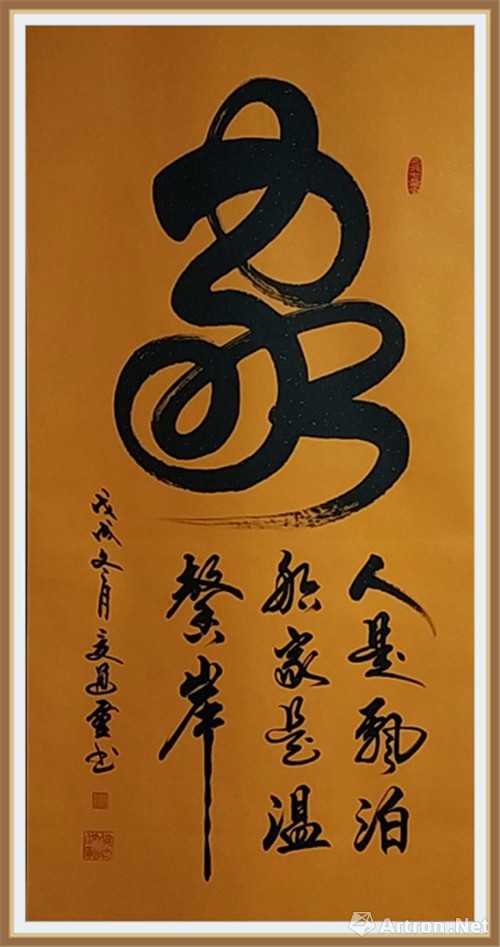 家
人是飘泊
船家是温
馨岸
戊戌冬月书
Artron.Net